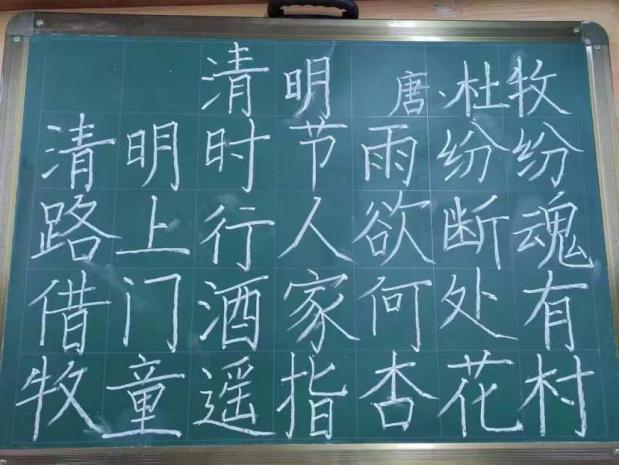 清明 唐·杜牧
清明时节雨纷纷
路上行人欲断魂
借门酒家何处有
牧童遥指杏花村